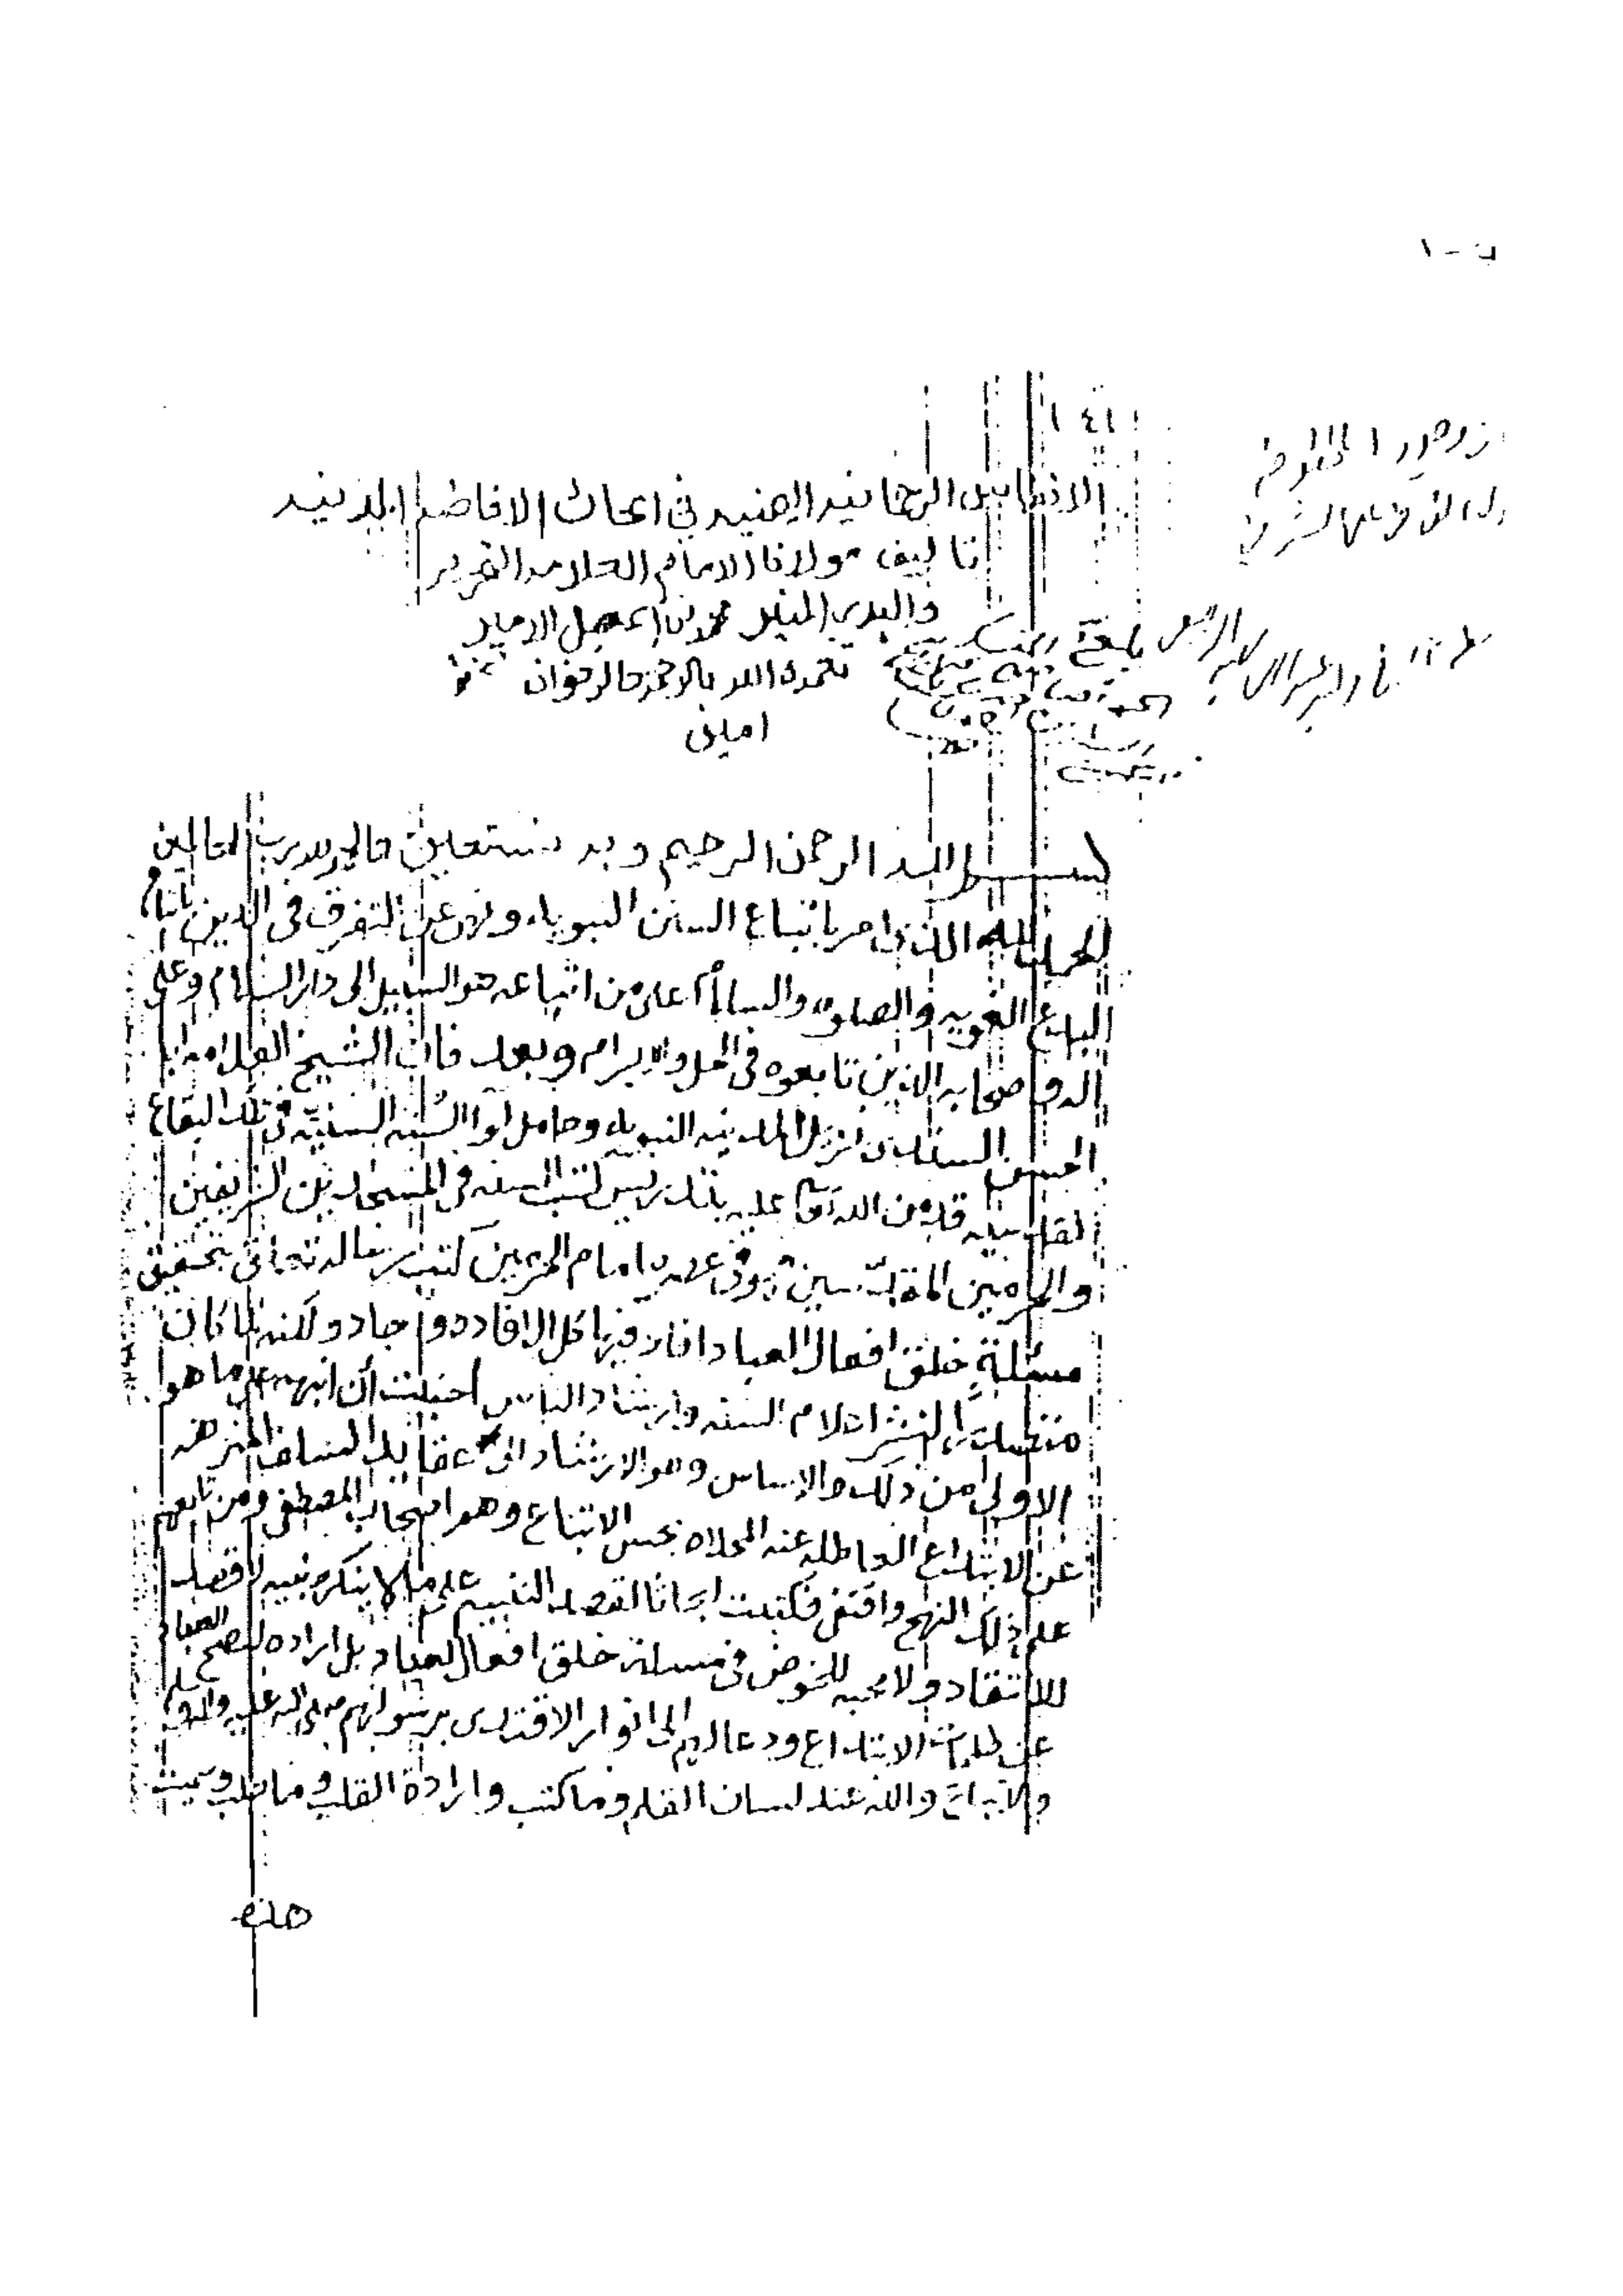 الانفاس الرحمانيه اليمنيه في ابحاث الافاضه المدنيه
تاليف مولانا الامام العلامه النحرير
والبدر المنير محمد بن اسمعيل الامير
تغمده الله بالرحمة والرضوان
امين
بسم الله الرحمن الرحيم وبه نستعين والحمد لله رب العالمين
الحمد لله الذي امر باتباع السنن النبويه ونهى عن التفرق في الدين باتباع
البدع الغويه والصلوه والسلام على من اتباعه هو السبيل الى دار السلام وعلى
اله واصحابه الذين تابعوه في الحل والابرام وبعد فان الشيخ العلامه ابا
الحسن السندي نزيل المدينه النبويه وحامل لوا السنه السنيه في تلك البقاع
المقدسيه قد من الله تعالى عليه بتدريس كتب السنه في المسجدين الشريفين
والحرمين المقدسين وفي عهده امام الحرمين كتب رساله تعاني بتحقيق
مسئلة خلق افعال العباد افاد فيها كل الافاده واجاد ولكنه لما كان
منتصبا لنشر اعلام السنه وارشاد الناس احببت أن انبهه على ما هو
الاولى من ذلك والاساس وهو الارشاد الى عقايد السلف المنزهه
عن الابتداع العاطله عنه المحلاه بحسن الاتباع وهو اصحاب المصطفى ومن تابعهم
على ذلك النهج واقتفى فكتبت ابحاثا لقصد التنبيه على ما لا ينكره نبيه لا قصد
للانتقاد ولا محبه للخوض في مسئلة خلق افعال العباد بل اراده لنصح العباد
عن ظلمات الابتداع ودعا لهم الى انوار الاقتدى برسولهم صلى الله عليه واله وسلم
والاتباع والله عند لسان القلم وما كتب وارادة القلب وما طلب وسميت
هذه